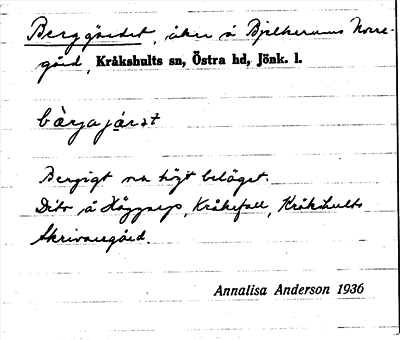 Berggärdet, åker å Bjelkerums Norre-
gård, Kråkshults sn, Östra hd, Jönk. l.
bærjajæ̀rət
Bergigt och högt beläget.
Dito å Häggnäs, Kråkefall, Kråkshults
Skrivaregård.
Annalisa Anderson 1936